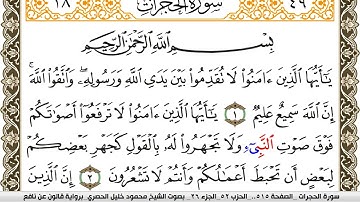 ١٨ سورة الحجرات ٤٩
بِسْمِ اللَّهِ الرَّحْمَٰنِ الرَّحِيمِ
يَٰٓأَيُّهَا الَّذِينَ ءَامَنُوا لَا تُقَدِّمُوا بَيْنَ يَدَيِ اللَّهِ وَرَسُولِهِۦ وَاتَّقُوا اللَّهَ
إِنَّ اللَّهَ سَمِيعٌ عَلِيمٌ ١ يَٰٓأَيُّهَا الَّذِينَ ءَامَنُوا لَا تَرْفَعُوا أَصْوَٰتَكُمْ
فَوْقَ صَوْتِ النَّبِيٓءِ وَلَا تَجْهَرُوا لَهُۥ بِالْقَوْلِ كَجَهْرِ بَعْضِكُمْ
لِبَعْضٍ أَن تَحْبَطَ أَعْمَٰلُكُمْ وَأَنتُمْ لَا تَشْعُرُونَ ٢ إِنَّ الَّذِينَ
سورة الحجرات ..الصفحة ٥١٥.... الحزب ٥٢ ..الجزء ٢٦ . بصوت الشيخ محمود خليل الحصري .برواية قالون عن نافع